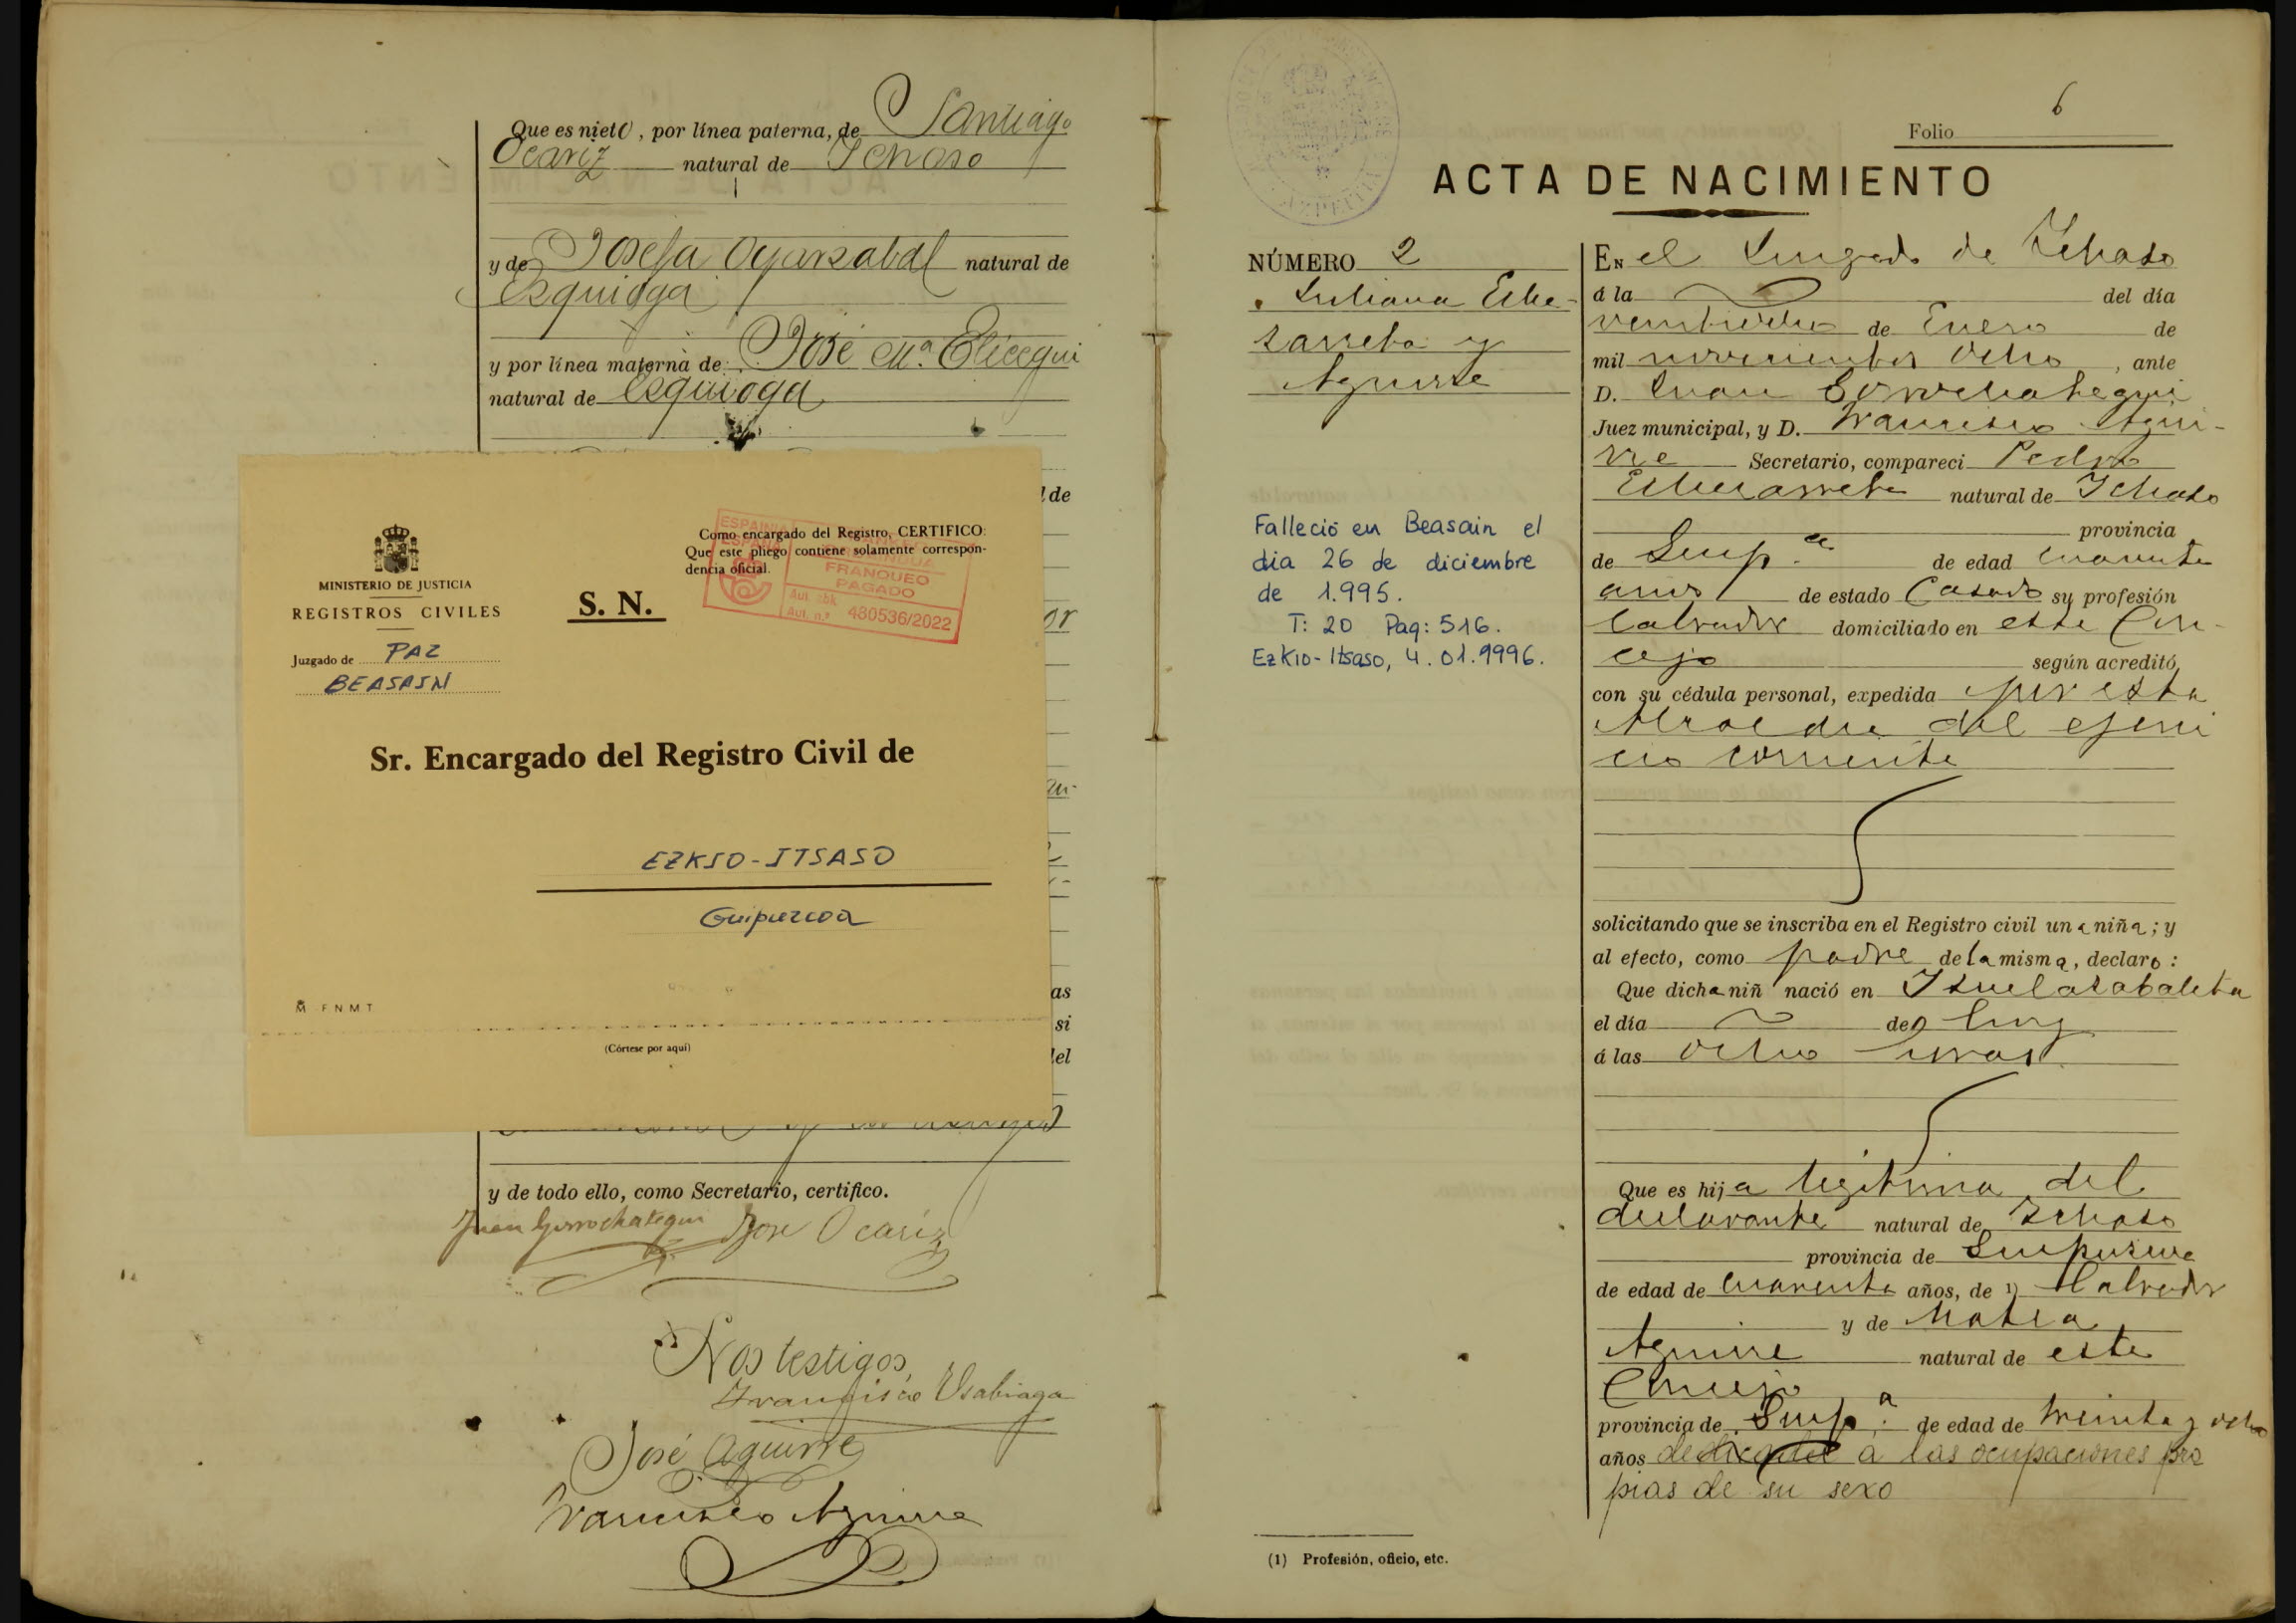 Que es nieto, por línea paterna, de Santiago
Ocariz natural de Ichaso
y de Josefa Oyarzabal natural de
Ezquioga
y por línea materna de José Mª. Elicegui
natural de Ezquioga
de
MINISTERIO DE JUSTICIA
REGISTROS CIVILES
Juzgado de PAZ
BEASAIN
S. N.
Como encargado del Registro, CERTIFICO:
Que este pliego contiene solamente correspon-
dencia oficial.
ESPAINIA
ESPAÑA
FRANQUEO
PAGADO
Aut. zbk
Aut. n.º 480536/2022
Sr. Encargado del Registro Civil de
EZKIO-ITSASO
Guipuzcoa
M FNMT
(Córtese por aquí)
or
as
si
del
y de todo ello, como Secretario, certifico.
Juan Gorrochategui José Ocariz
Los testigos
Francisco Usabiaga
José Aguirre
Francisco Aguirre
Folio 6
ACTA DE NACIMIENTO
NÚMERO 2
Juliana Eche-
zarreta y
Aguirre
Falleció en Beasain el
dia 26 de diciembre
de 1.995.
T: 20 Pag: 516.
Ezkio-Itsaso, 4.01.9996.
En el Juzgado de Ichaso
á la del día
veintiocho de Enero de
mil novecientos ocho, ante
D. Juan Gorrochategui
Juez municipal, y D. Francisco Agui-
rre Secretario, compareci Pedro
Echezarreta natural de Ichaso
provincia
de Guip.ª de edad cuarenta
años de estado Casado su profesión
labrador domiciliado en este Con-
cejo según acreditó
con su cédula personal, expedida por esta
Alcaldia del ejerci
cio corriente
solicitando que se inscriba en el Registro civil una niña; y
al efecto, como padre de la misma, declaro:
Que dicha niñ nació en
el día de hoy
á las ocho horas
Que es hija legitima del
declarante natural de Ichaso
provincia de Guipuzcoa
de edad de cuarenta años, de 1) labrador
y de Matea
Aguirre natural de este
Concejo
provincia de Guip.ª de edad de treinta y ocho
años dedicada á las ocupaciones pro
pias de su sexo
(1) Profesión, oficio, etc.